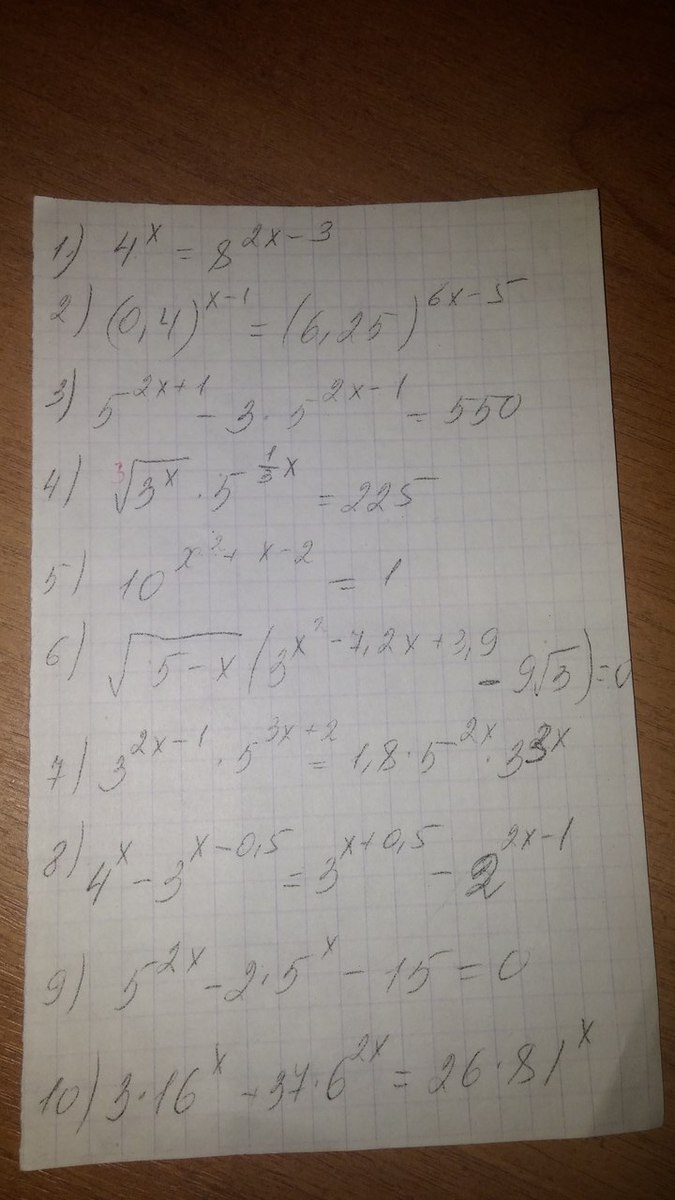 1) 4^x = 8^(2x-3)
2) (0,4)^(x-1) = (6,25)^(6x-5)
3) 5^(2x+1) - 3·5^(2x-1) = 550
4) ³√(3^x) · 5^(1/3 x) = 225
5) 10^(x²+x-2) = 1
6) √(5-x) (3^(x²-7,2x+3,9) - 9√3) = 0
7) 3^(2x-1) · 5^(3x+2) = 1,8 · 5^(2x) · 3^(3x)
8) 4^x - 3^(x-0,5) = 3^(x+0,5) - 2^(2x-1)
9) 5^(2x) - 2·5^x - 15 = 0
10) 3·16^x + 37·6^(2x) = 26·81^x